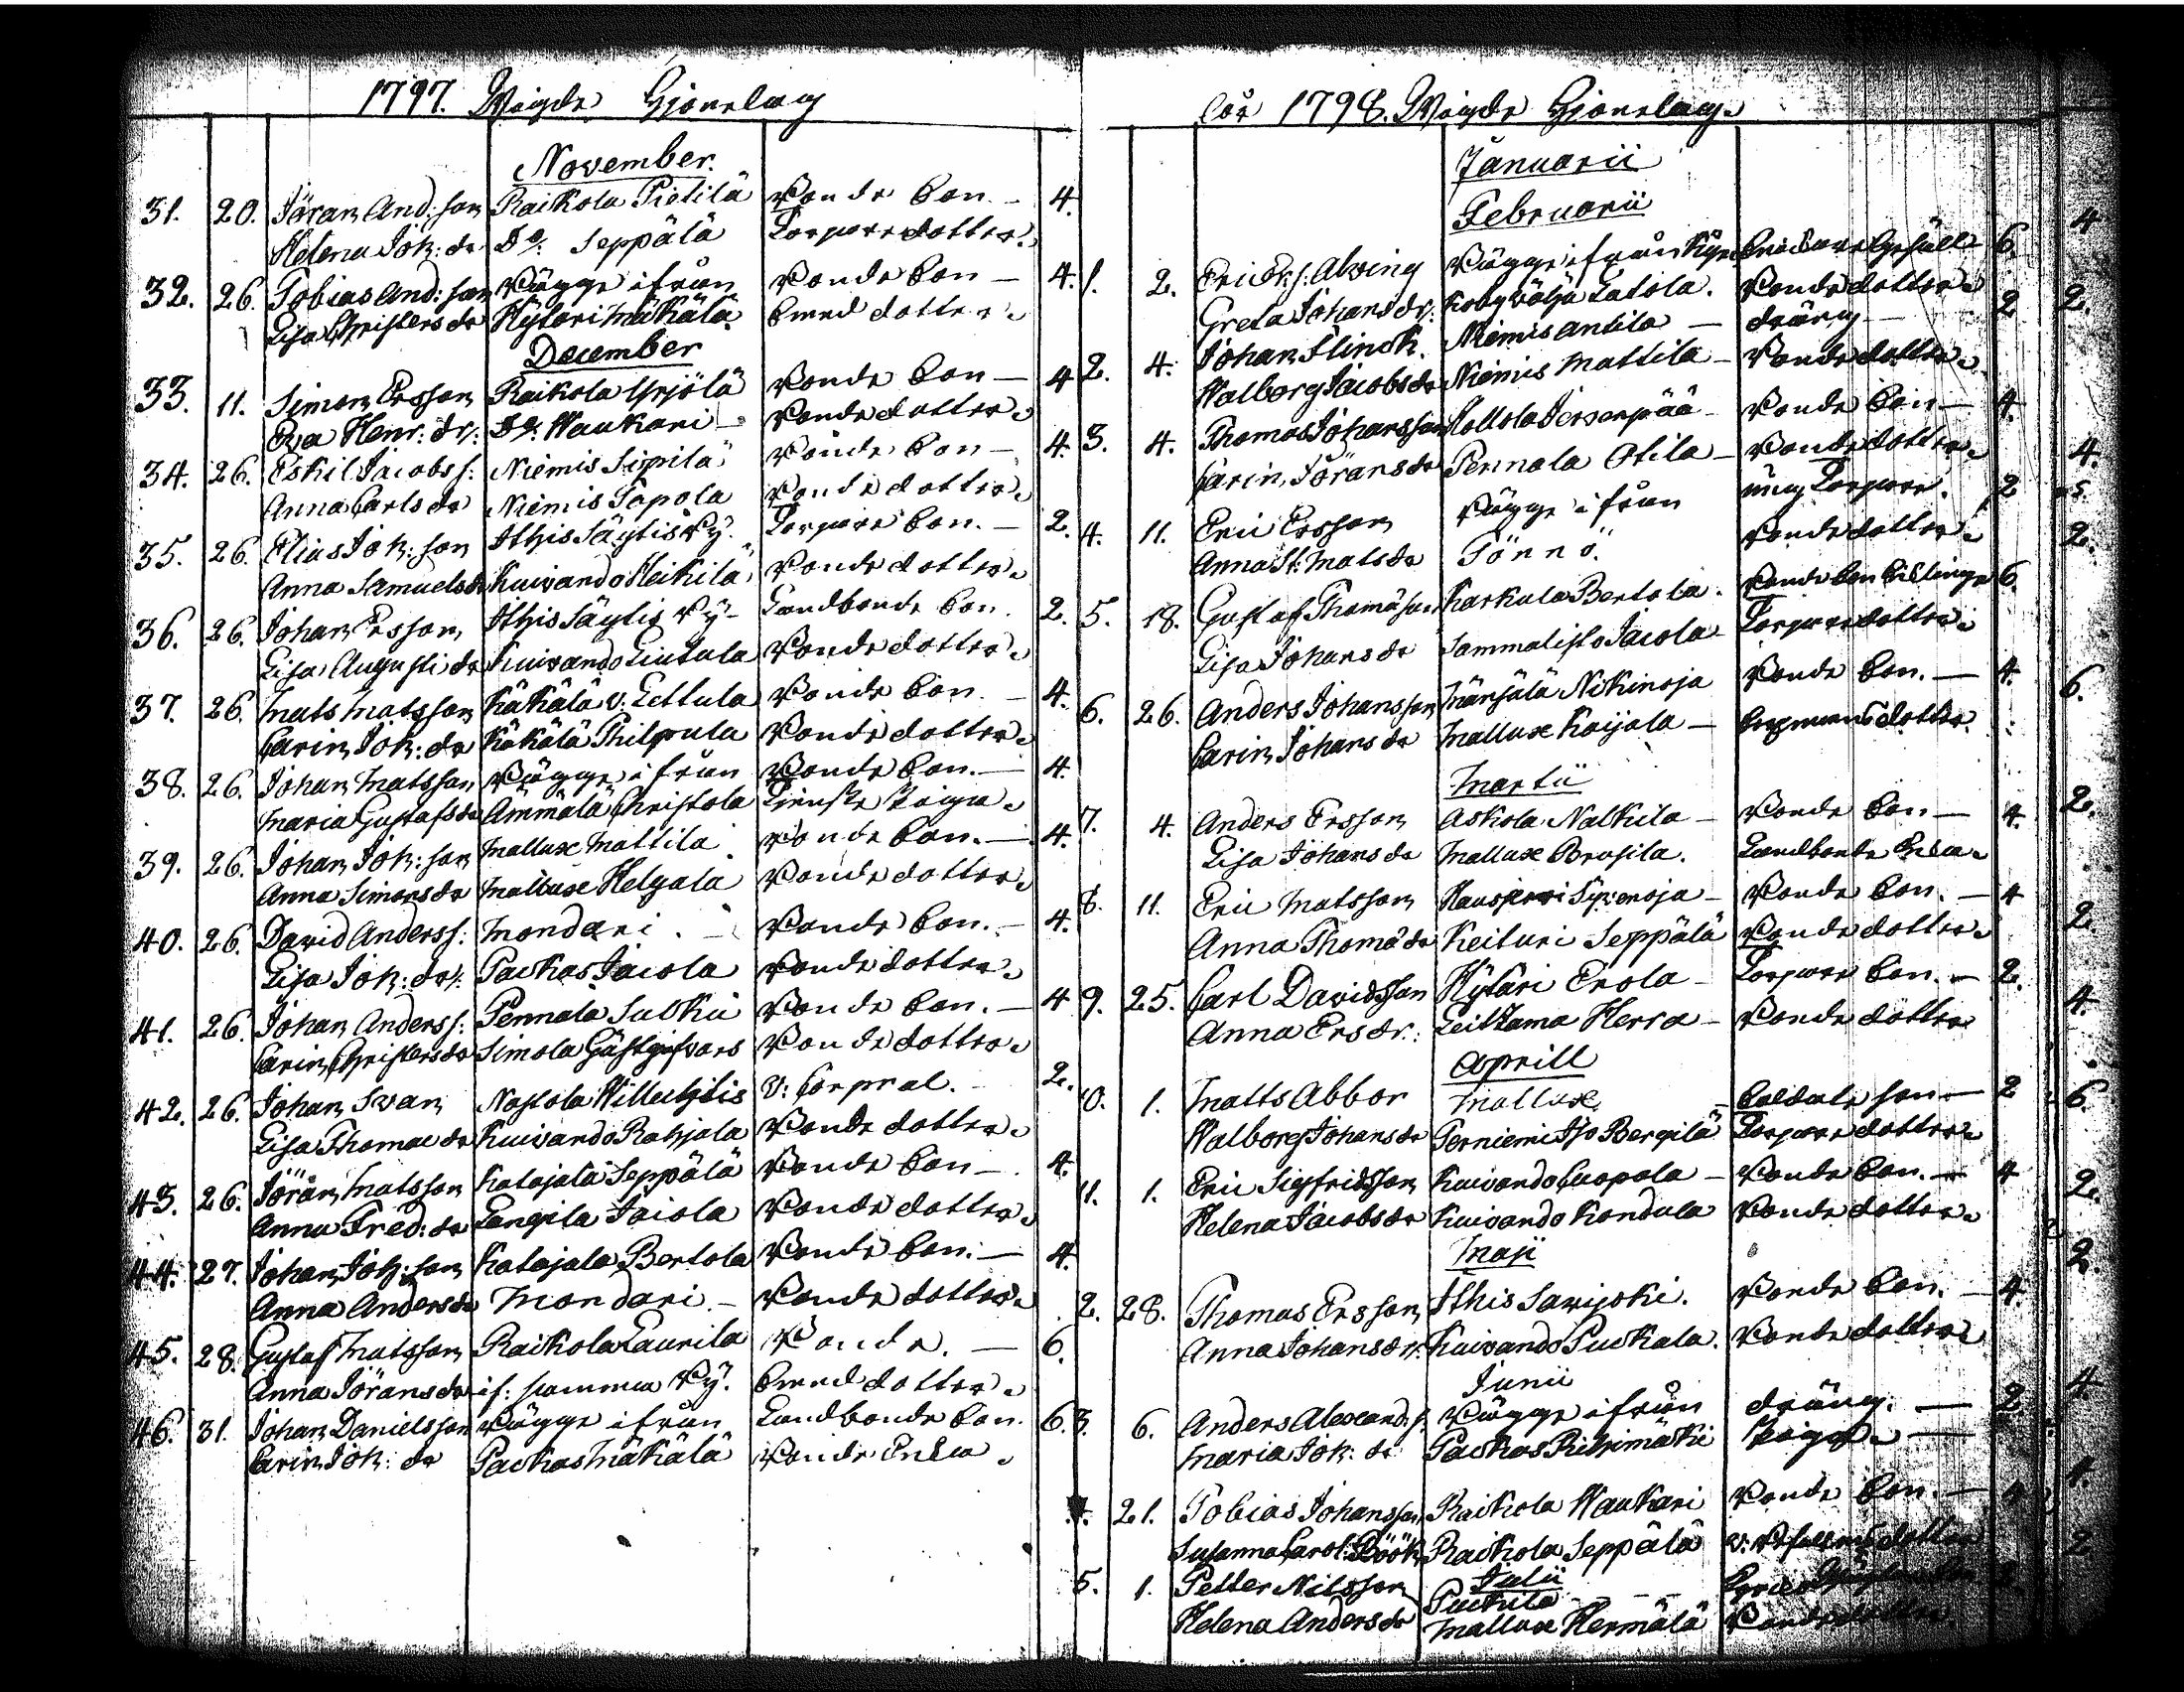 1797. Wigde Hjonelag
November.
31. 20. Jöran And: son Raikola Pietilä Bonde Son. – 4.
Helena Joh: dr Do. Seppälä Torpare dotter.
32. 26. Tobias And: son Bägge ifrån Bonde Son – 4.
Lisa Christers dr Hytöri Mäkälä Smed dotter.
December
33. 11. Simon Ersson Raikola Yrjölä Bonde Son – 4
Eva Henr: dr. Do. Waukari – Bonde dotter.
34. 26. Eskil Jacobs s: Niemis Sipilä Bonde Son – 4.
Anna Carls dr Niemis Papola Bonde dotter.
35. 26. Elias Joh: son Ithis Säytis By. Torpare Son. – 2.
Anna Samuels dr Kuivando Heikilä Bonde dotter.
36. 26. Johan Ersson Ithis Säytis By – Landbonde Son. 2.
Lisa Augusti dr Kuivando Liutula Bonde dotter.
37. 26. Mats Matsson Käkälä v. Eettula Bonde Son. – 4.
Carin Joh: dr Käkälä Philpula Bonde dotter.
38. 26. Johan Matsson Bägge ifrån Bonde Son. – 4.
Maria Gustafs dr Ammälä Christola Tienste Piga.
39. 26. Johan Joh: son Malluse Mattila Bonde Son. – 4.
Anna Simons dr Malluse Helgala Bonde dotter.
40. 26. David Anders s: Mondari. – Bonde Son. – 4.
Lisa Joh: dr: Packas Jaiola Bonde dotter.
41. 26. Johan Anders s: Pennala Sulku Bonde Son. – 4
Carin Christers dr Simola Gästgifvars Bonde dotter.
42. 26. Johan Svan Nastola Villähtis V: Corpral. – 2.
Lisa Thomae dr Kuivando Rahjala Bonde dotter.
43. 26. Jöran Matsson Katajala Seppälä Bonde Son – 4.
Anna Fred: dr Langila Jaiola Bonde dotter.
44. 27. Johan Joh: son Katajala Bertola Bonde Son. – 4.
Anna Anders dr Mondari. – Bonde dotter.
45. 28. Gustaf Matsson Raikola Laurila Bonde. – 6.
Anna Jörans dr if: samma By. Smed dotter.
46. 31. Johan Danielsson Bägge ifrån Landbonde Son. 6.
Carin Joh: dr Packas Mäkälä Bonde Enka.
1798. Wigde Hjonelag.
Januarii
Februarii
1. 2. Eric Er: s: Alving Bägge ifrån 6.
Greta Johans dr. Tatola. Bonde dotter.
2. 4. Johan Flinck. Niemis Antila – dräng – 2
Walborg Jacobs dr Niemis Mattila – Bonde dotter.
3. 4. Thomas Johansson Hollola Jervenpää – Bonde Son – 4.
Carin Jörans dr Pennala Otila – Bonde dotter.
4. 11. Eric Ersson Bägge ifrån ung Torpare. 2
Anna St: Mats dr Tönnö. Bonde dotter.
5. 18. Gustaf Thomæson Karkula Bertola. Bonde Son 6.
Lisa Johans dr Sammalisto Jaiola – Torpare dotter.
6. 26. Anders Johansson Mänsälä Nikinoja Bonde Son. – 4.
Carin Johans dr Malluse Kaijala – dotter.
Martii
7. 4. Anders Ersson Askola Nalkila – Bonde Son – 4.
Lisa Johans dr Malluse Brusila. Landbonde Enka.
8. 11. Eric Matsson Hausjervi Syvenoja – Bonde Son. – 4
Anna Thomæ dr Keituri Seppälä Bonde dotter.
9. 25. Carl Davidsson Hytäri Erola – Torpare Son. – 2.
Anna Ers dr: Leitzama Herra – Bonde dotter
Aprill
10. 1. Matts Abbor Malluse Soldate son – 2
Walborg Johans dr Perniemi Iso Bergilä Torpare dotter.
11. 1. Eric Sigfridsson Kuivando Cuopola – Bonde Son. – 4
Helena Jacobs dr Kuivando Kondula Bonde dotter.
Maji
2. 28. Thomas Ersson Ithis Savijoki. Bonde Son. – 4.
Anna Johans dr. Kuivando Puckala. Bonde dotter.
Junii
3. 6. Anders Alexand. s. Bägge ifrån dräng. – 2.
Maria Joh: dr Packas Riihimäki Piga. –
4. 21. Tobias Johansson Raikola Waukari Bonde Son. – 4
Susanna Carol: Böök Raikola Seppälä dotter
Julii
5. 1. Petter Nilsson Puckila – – 2
Helena Anders dr Malluse Hermälä Bonde dotter.